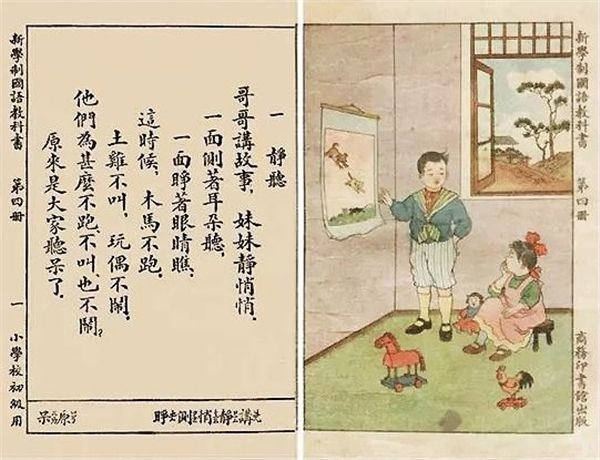 新學制國語教科書 第四冊
商務印書館出版
一 靜聽
哥哥講故事，妹妹靜悄悄，
一面側著耳朵聽，
一面睜著眼睛瞧，
這時候，木馬不跑，
土雞不叫，玩偶不鬧，
他們為甚麼不跑，不叫也不鬧？
原來是大家聽呆了。
講 靜 悄 側 睜 原 呆
新學制國語教科書 第四冊 一 小學校初級用